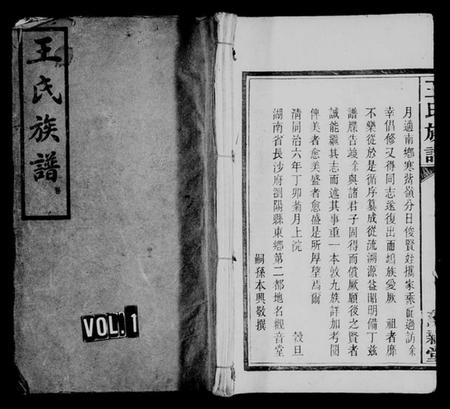 王氏族譜
VOL. 1
王氏族譜
月過南鄉寒
嶺分日俊賢
攜家乘
過訪余
幸倡修又得同志送復出而
族愛厥 祖者靡
不樂從於是循序纂成從流溯源益昭明備丁茲
譜牒告竣余與諸君子固得而償厥願後之賢者
誠能繼其志而述其事重一本敦九族詳加考閱
俾美者愈美盛者愈盛是所厚望焉爾
清同治六年丁卯菊月上浣 穀旦
湖南省長沙府瀏陽縣東鄉第二都地名觀音堂
嗣孫本興敬撰